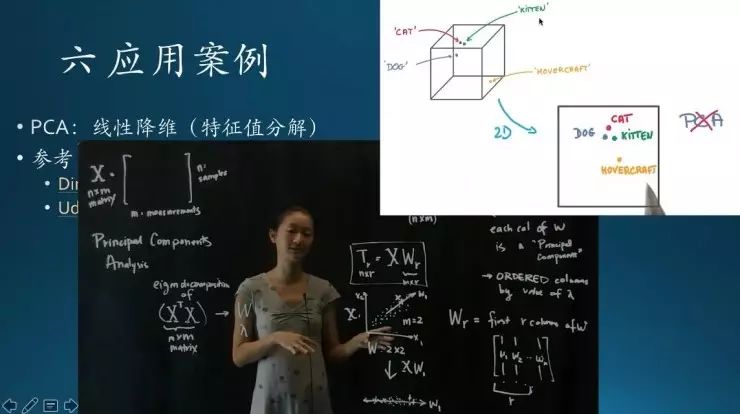 六 应用案例
• PCA：线性降维（特征值分解）
• 参考
• Din
• Ud
'KITTEN'
'CAT'
'DOG'
'HOVERCRAFT'
2D
CAT
DOG
KITTEN
HOVERCRAFT
PCA
X
n×m
matrix
n=
samples
m = measurements
Principal Components
Analysis
eigendecomposition
of
(XᵀX)
m×m
matrix
→ W
λ
(n×m)
Tᵣ = XWᵣ
n×r
m×r
x₂
w₁
X
x₁
m=2
W=2×2
↓ XW₁
w₁
each col of W
is a "Principal
Component"
→ ORDERED columns
by value of λ
Wᵣ = first r columns of W
r